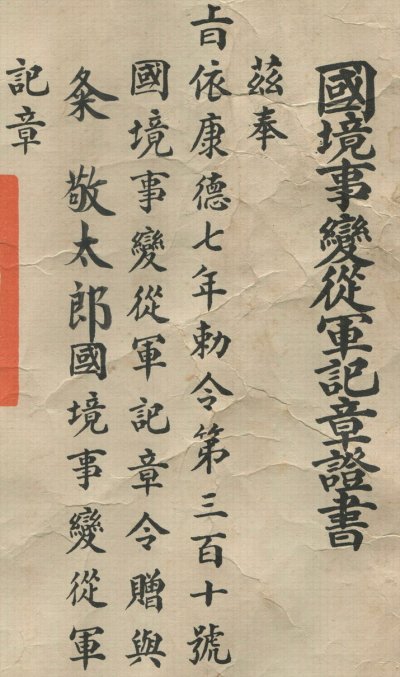 國境事變從軍記章證書
茲奉
旨依康德七年勅令第三百十號
國境事變從軍記章令贈與
粂 敬太郎國境事變從軍
記章